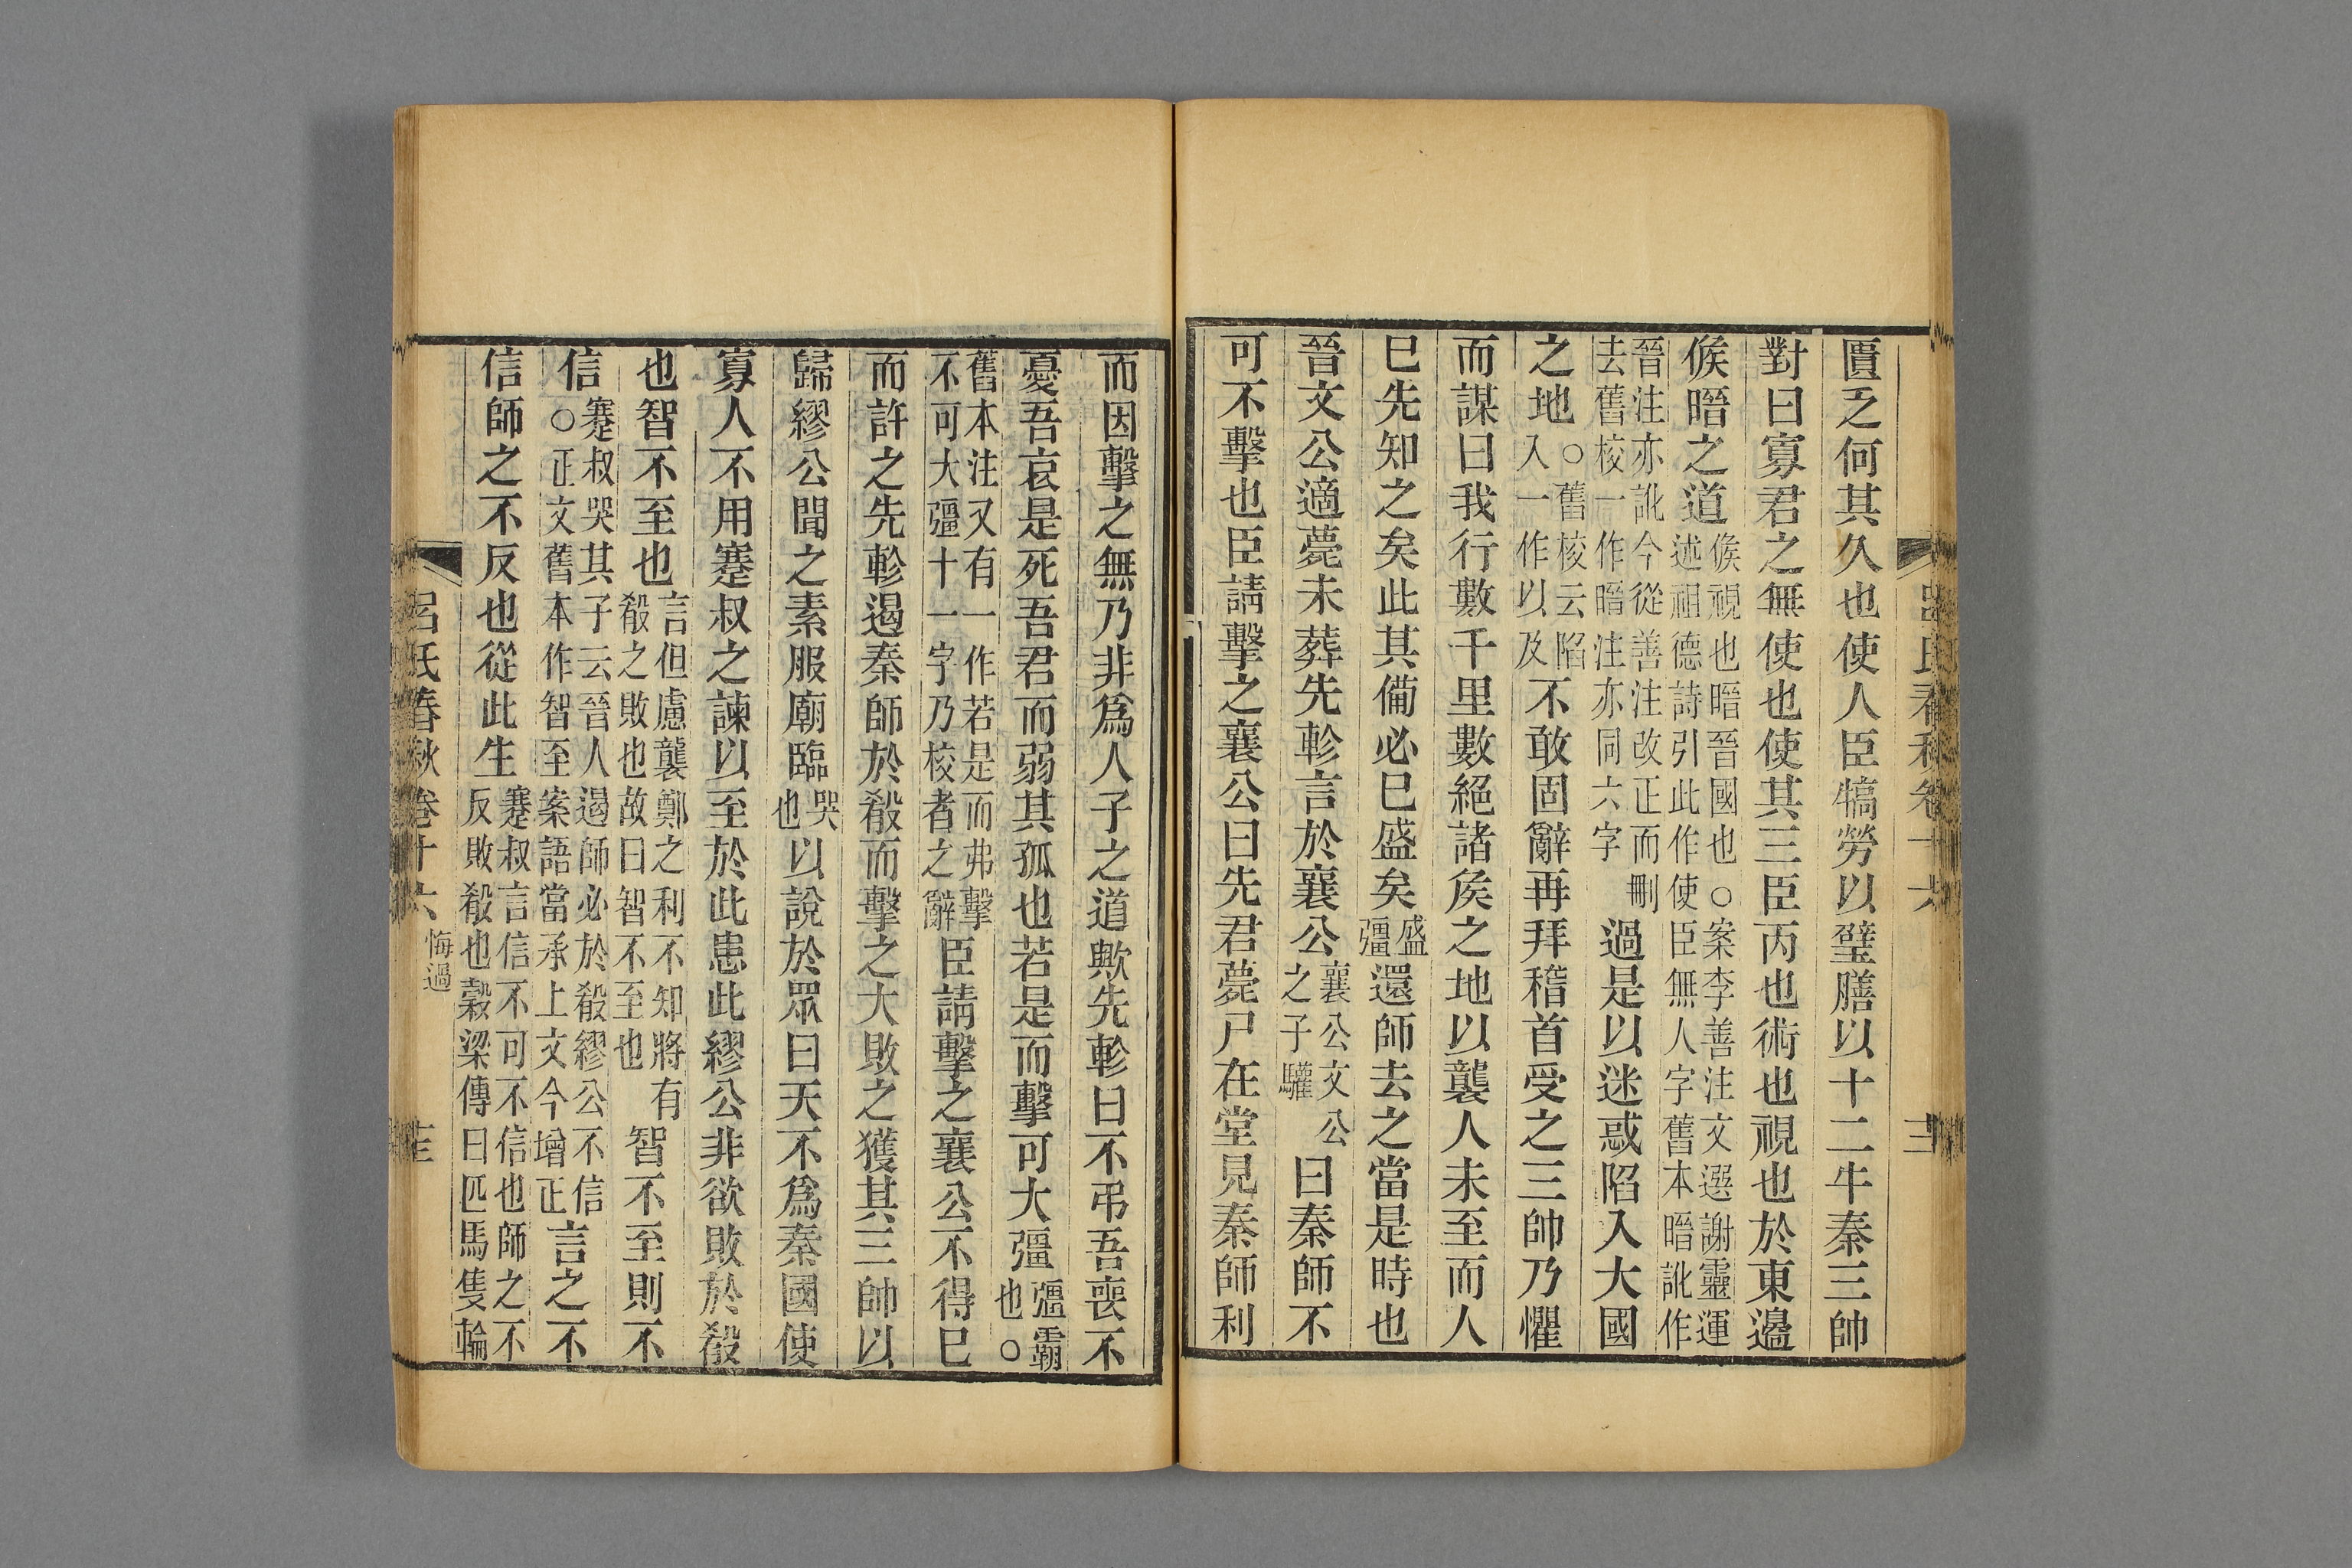 匱乏何其久也使人臣犒勞以璧膳以十二牛秦三帥
對曰寡君之無使也使其三臣丙也術也視也於東邉
候㬐之道候視也㬐晉國也○案李善注文選謝靈運述祖德詩引此作使臣無人字舊本㬐訛作
晉注亦訛今從善注改正而刪去舊校一作㬐注亦同六字過是以迷惑陷入大國
之地○舊校云陷入一作以及不敢固辭再拜稽首受之三帥乃懼
而謀曰我行數千里數絕諸侯之地以襲人未至而人
已先知之矣此其備必已盛矣盛彊還師去之當是時也
晉文公適薨未葬先軫言於襄公襄公文公之子驩曰秦師不
可不擊也臣請擊之襄公曰先君薨尸在堂見秦師利
而因擊之無乃非爲人子之道歟先軫曰不弔吾喪不
憂吾哀是死吾君而弱其孤也若是而擊可大彊彊霸也○
舊本注又有一作若是而弗擊不可大彊十一字乃校者之辭臣請擊之襄公不得已
而許之先軫遏秦師於殽而擊之大敗之獲其三帥以
歸繆公聞之素服廟臨哭也以說於眾曰天不爲秦國使
寡人不用蹇叔之諫以至於此患此繆公非欲敗於殽
也智不至也言但慮襲鄭之利不知將有殽之敗也故曰智不至也智不至則不
信蹇叔哭其子云晉人遏師必於殽繆公不信○正文舊本作智至案語當承上文今增正言之不
信師之不反也從此生蹇叔言信不可不信也師之不反敗殽也穀梁傳曰匹馬隻輪
呂氏春秋卷十六 悔過